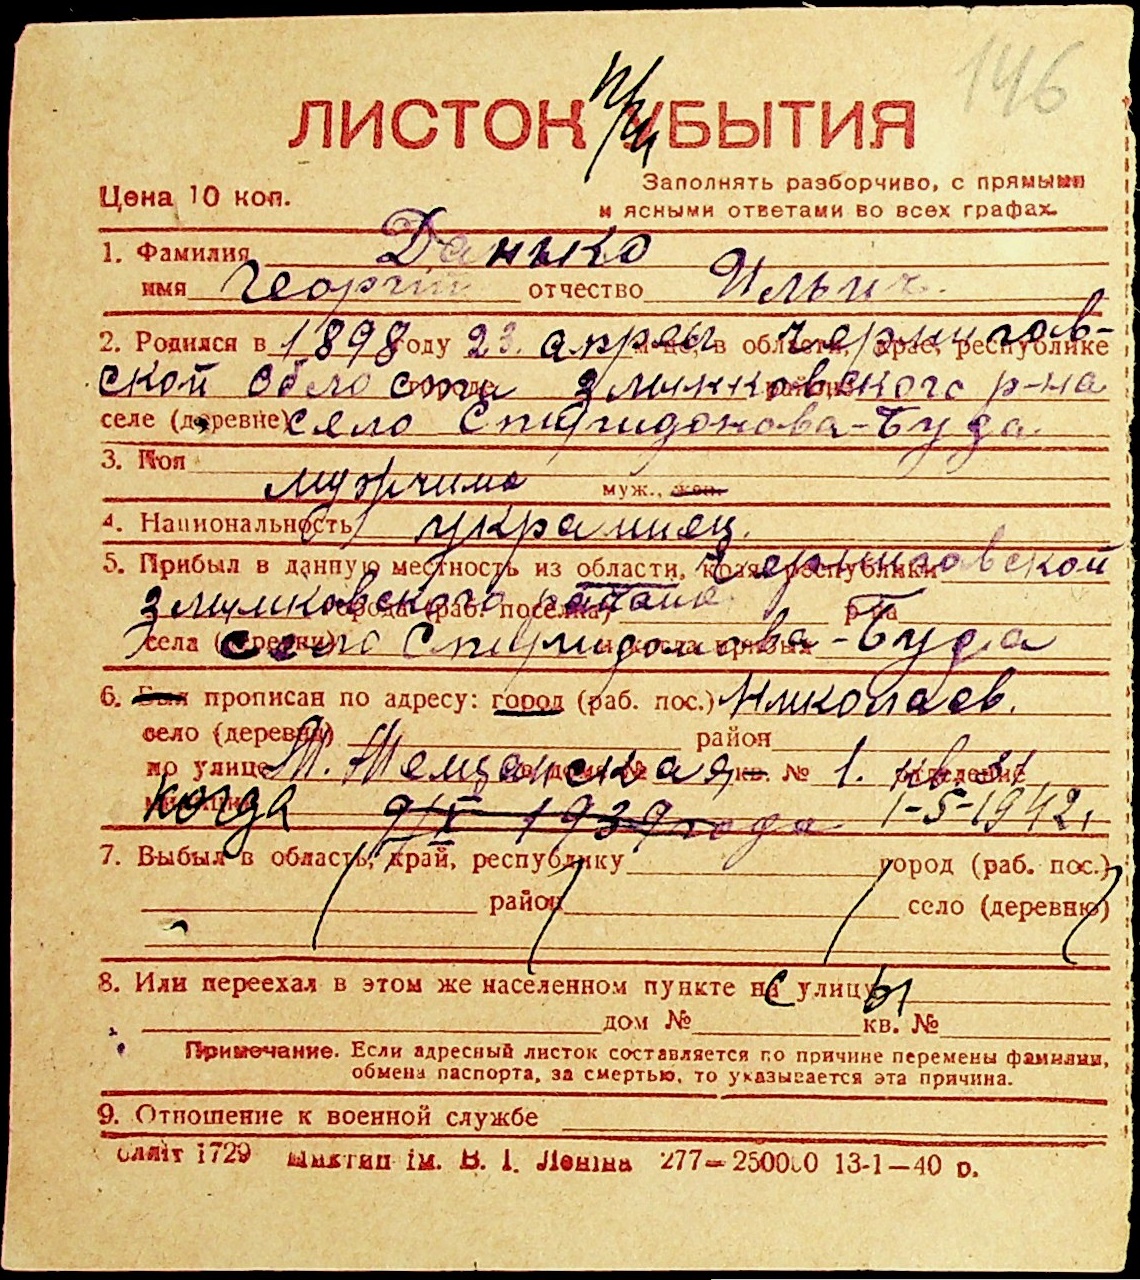 146
ЛИСТОК УБЫТИЯ
Цена 10 коп.
Заполнять разборчиво, с прямыми
и ясными ответами во всех графах.
1. Фамилия Данько
имя Георгий отчество Ильич
2. Родился в 1898 году 23 апреля м-це, в области, крае, республике Чернигов-
ской области города Змиоковского района р-на
селе (деревне) село Спиридонова-Буда
3. Пол мужчина муж., жен.
4. Национальность украинец.
5. Прибыл в данную местность из области, края, республики Черниговской
города (раб. поселка) района р-на
села (деревни) село Спиридонова-Буда
6. Был прописан по адресу: город (раб. пос.) Николаев.
село (деревня) район
по улице М. Мещанская, дом № кв. № 1. кв 31 отделение
милиции когда 9/IX 1939 года 1-5-1942,
7. Выбыл в область, край, республику город (раб. пос.)
район село (деревню)
8. Или переехал в этом же населенном пункте на с улицу ы
дом № кв. №
Примечание. Если адресный листок составляется по причине перемены фамилии,
обмена паспорта, за смертью, то указывается эта причина.
9. Отношение к военной службе
блліт 1729 им. В. І. Леніна 277—250000 13-1—40 р.